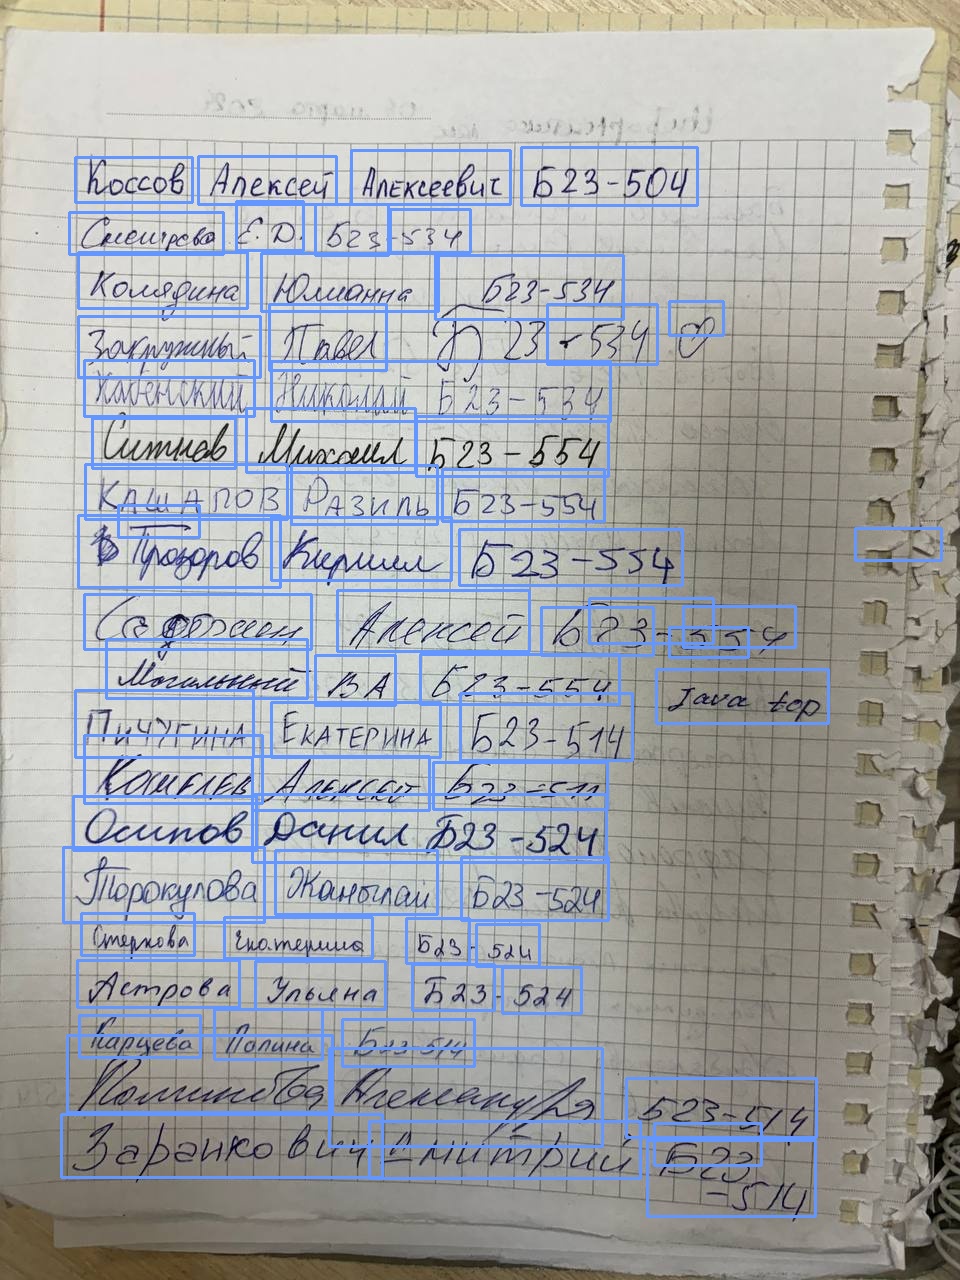 Коссов Алексей Алексеевич Б23-504
Смешрева Е.Д. Б23-534
Колядина Юлианна Б23-534
Закружный Павел Б23-534
Хабенский Николай Б23-534
Ситнов Михаил Б23-554
КАШАПОВ РАЗИЛЬ Б23-554
Прозоров Кирилл Б23-554
Алексей Б23-554
Могильный ВА Б23-554
Java top
ПИЧУГИНА ЕКАТЕРИНА Б23-514
Кошелев Алексей
Осипов Данил Б23-524
Торокулова Жаныл​ай Б23-524
Стеркова Екатерина Б23-524
Астрова Ульяна Б23-524
Карцева Полина Б23-514
Александра Б23-514
Заранкович Дмитрий Б23
-514